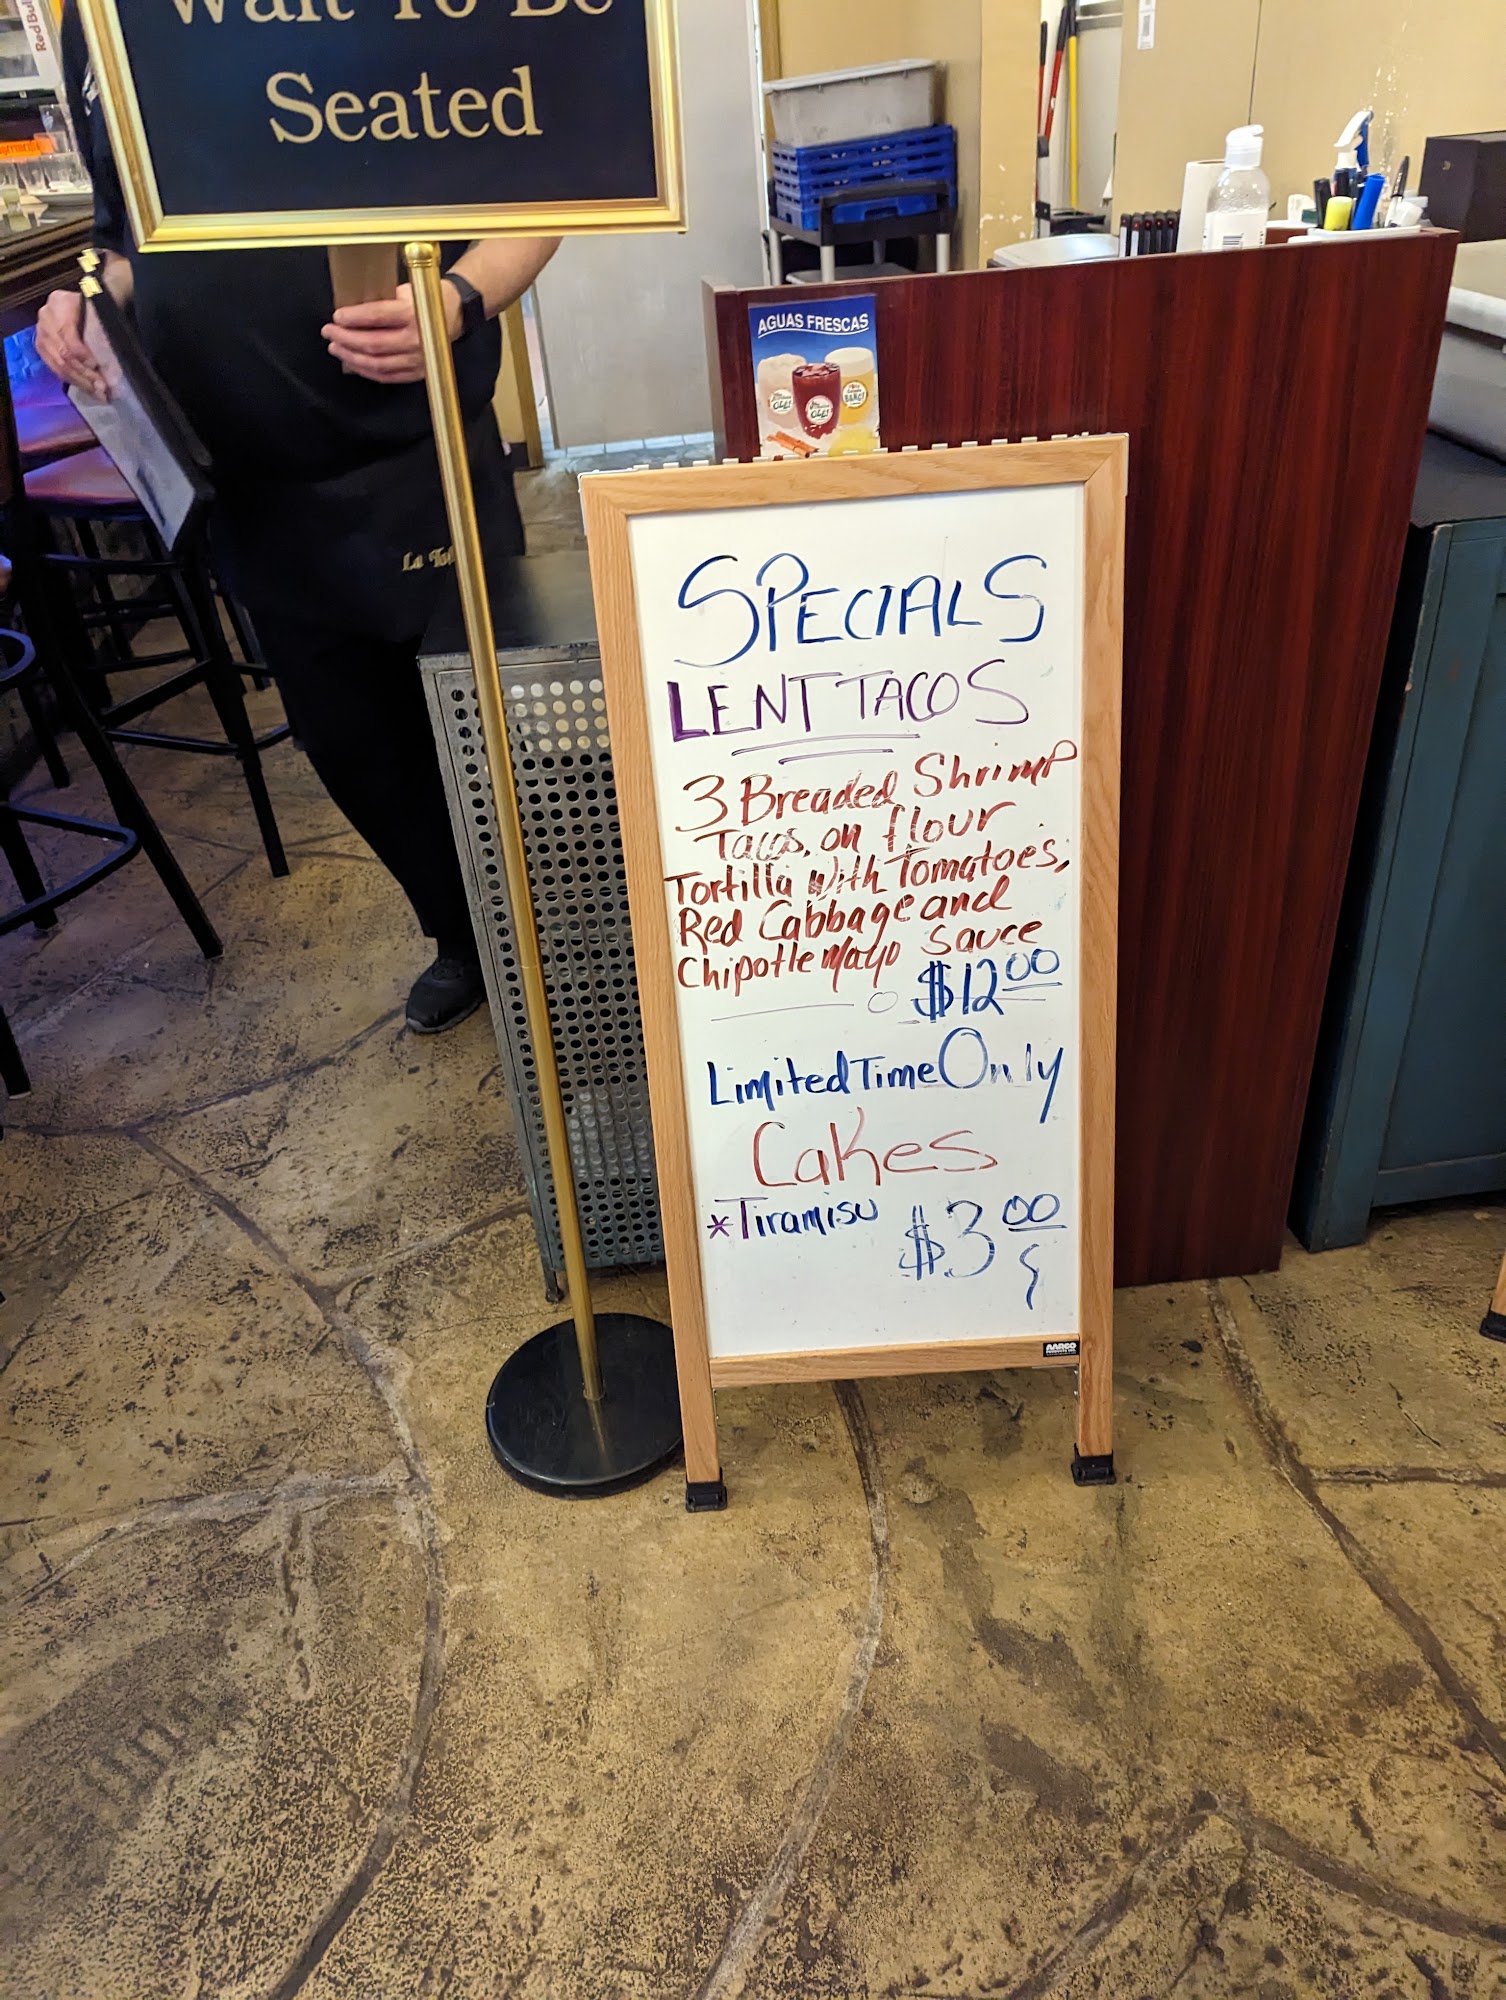 Wait To Be
Seated
Red Bull
AGUAS FRESCAS
OLÉ!
OLÉ!
La
SPECIALS
LENT TACOS
3 Breaded Shrimp
Tacos, on flour
Tortilla with Tomatoes,
Red Cabbage and
Chipotle Mayo Sauce
$12.00
Limited Time Only
Cakes
*Tiramisu $3.00
AARCO